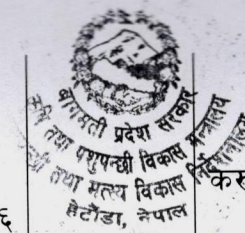 बागमती प्रदेश सरकार
कृषि तथा पशुपन्छी विकास मन्त्रालय
पन्छी तथा मत्स्य विकास निर्देशनालय
हेटौंडा, नेपाल
६